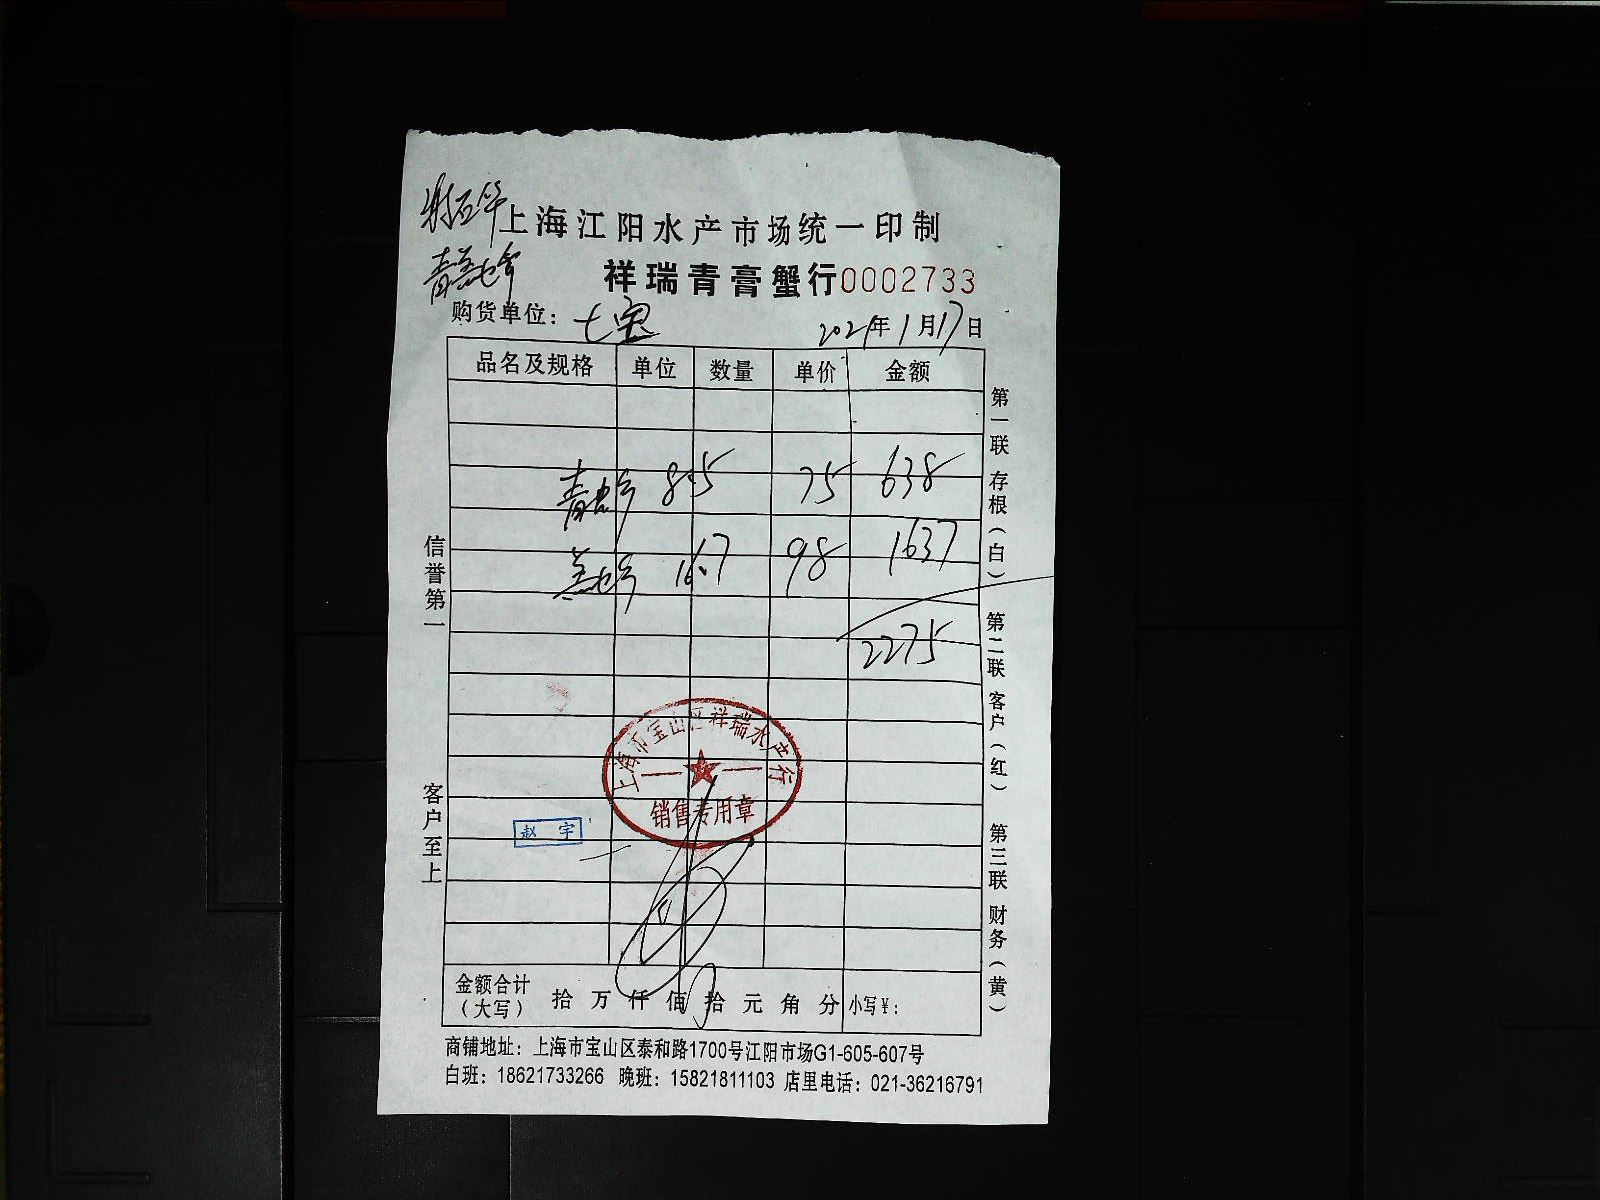 上海江阳水产市场统一印制
祥瑞青膏蟹行0002733
购货单位：七宝 2021年1月17日
品名及规格 单位 数量 单价 金额
青 8.5 75 638
16.7 98 1637
2275
信誉第一
客户至上
第一联 存根（白） 第二联 客户（红） 第三联 财务（黄）
上海市宝山区祥瑞水产行
销售专用章
赵宇
金额合计（大写） 拾 万 仟 佰 拾 元 角 分 小写¥：
商铺地址：上海市宝山区泰和路1700号江阳市场G1-605-607号
白班：18621733266 晚班：15821811103 店里电话：021-36216791